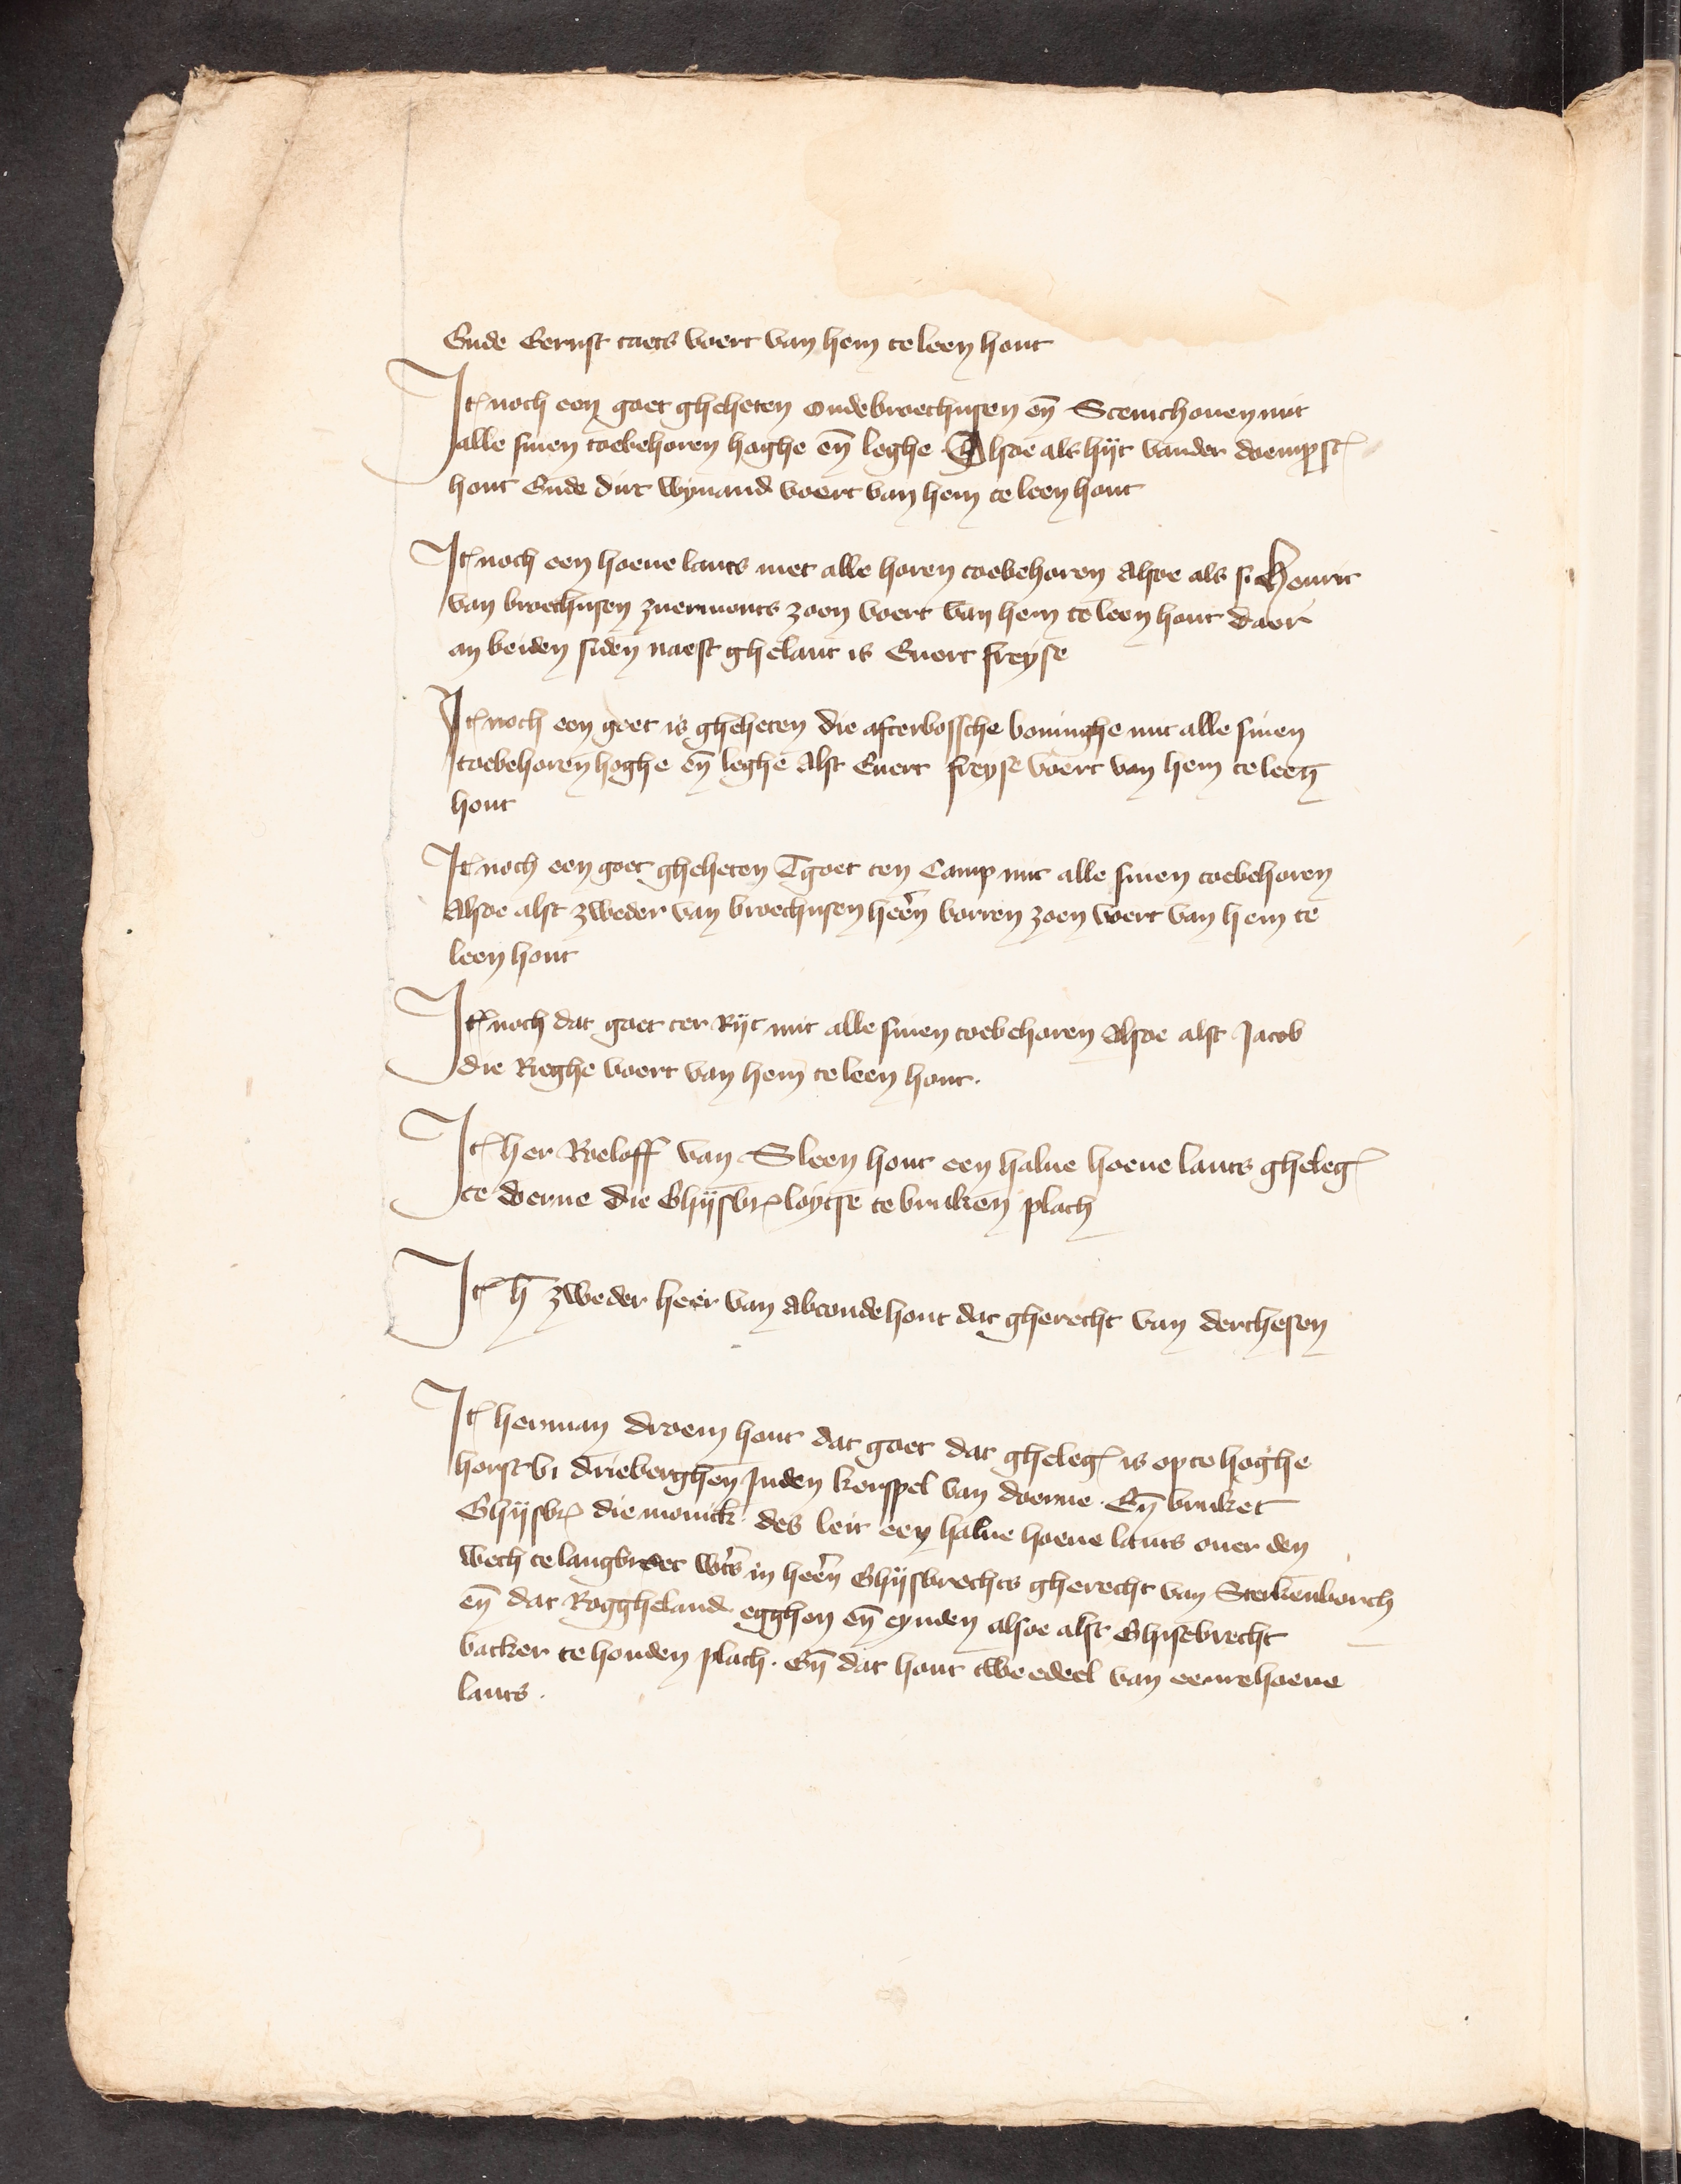 Ende Eernst taets voert van hem te leen hout
It noch een goet gheheten oudebroechusen eñ Stenichouen mit
alle sinen toebehoren hoghe eñ leghe · Alsoe als hijt vander doempst
hout Ende dirc wijnand voert van hem te leen hout
It noch een hoeue lants met alle horen toebehoren Alsoe als si Henric
van broechusen zuermonts zoen voert van hem te leen hout daer
an beiden siden naest ghelant is Euert freyse
It noch een goet is gheheten die afterbossche boninghe mit alle sinen
toebehoren hoghe eñ leghe Alst Euert freyse voert van hem te leen
hout
It noch een goet gheheten Tgoet ten Camp mit alle sinen toebehoren
Alsoe alst zweder van broechusen heren borren zoen voert van hem te
leen hout
It noch dat goet ter Rijt mit alle sinen toebehoren Alsoe alst Jacob
die Rieghe voert van hem te leen hout ·
It her Roeloff van Sleen hout een halue hoeue lants gheleg
te doerne die Ghijsbr loytse te bruken plach
It h̄ zweder heer van Abcoude hout dat gherecht van derthesen
It herman droem hout dat goet dat gheleg is opte hoghe
horst bi drieberghen Inden kerspel van doerne · Eñ bruket
Ghijsbr die monick · des leit een halue hoeue lants ouer den
wech te langbroec wts in heren Ghijsbrechts gherecht van Sterkenborch
eñ dat Roggheland egghen eñ eynden alsoe alst Ghisebrecht
backer te houden plach · Eñ dat hout twedeel van eenre hoeue
lants ·